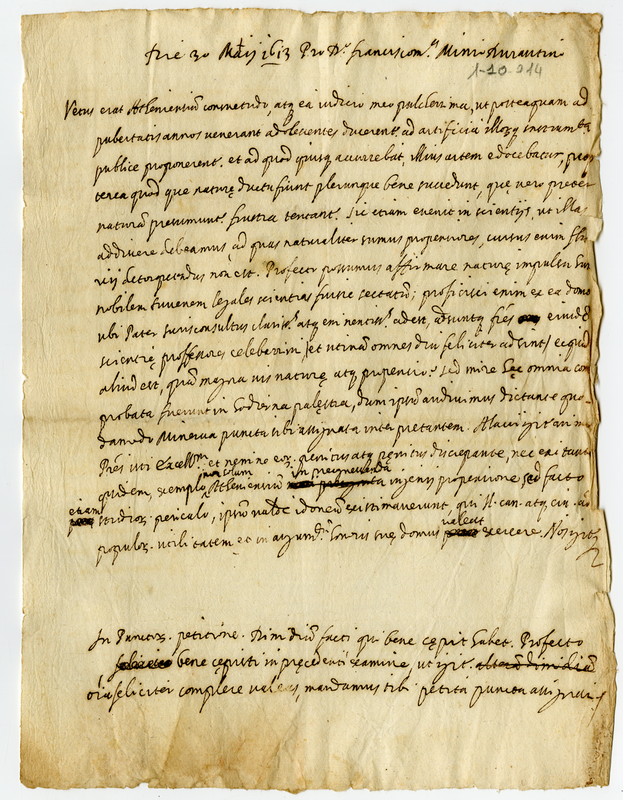 Die 30 Maij 1613 Pro D. Franciscom. Minio Aurantino
1-10-214
Vetus erat Atheniensiũ consuetudo, atq; ea iudicio meo pulcherrima, ut posteaquam ad
pubertatis annos venerant adolescentes ducerent. ad artificia illorq; instrumẽta
publice proponerent. et ad quod quisq; accurrebat, illius artem edocebatur, prop
terea quod que naturę ductu fiunt plerunque bene succedunt, quę vero preter
naturã presumunt. frustra tentant. Sic etiam evenit in scientijs, ut illas
addiscere debeamus, ad quas naturaliter sumus propensiores, cursus enim flu
vij detorquendus non est. Profecto possumus affirmare naturę impulsu hun
nobilem Iuvenem legales scientias fuisse sectatũ; proficisci enim ex ea domo
ubi Pater Iurisconsultus claris. atq; eminentis. adest, adsuntq; fres eiusdẽ
scientię professores celeberrimi (et utinã omnes diu feliciter adsint) ecquid
aliud est, quã magna vis naturę atq; propensio? Sed mire hęc omnia com
probata fuerunt in hodierna palęstra, dum ipsum audivimus dictunse quo
dammodo Minerva puncta sibi assignata interpretantem. Alacri igit. animo
Pres uti Excell.m et nemine eor. penitus atq; penitus discrepante, nec ea tantum
quidem, exemplo Atheniensiũ in pregnenda ingenij propensione sed facto
etiam studior. periculo, ipsum valde idoneũ existimaverunt, qui II. can. atq; civ. ad
populor. utilitatem et in augum. honoris suę domus valeat exercere. Nos igit.
In Punctor. petitione. Dimidiũ facti qui bene cępit habet. Profecto
bene cępisti in pręcedenti examine, ut igit. alterã dimidiũ
oia feliciter complere valeas, mandamus tibi petita puncta assignari.